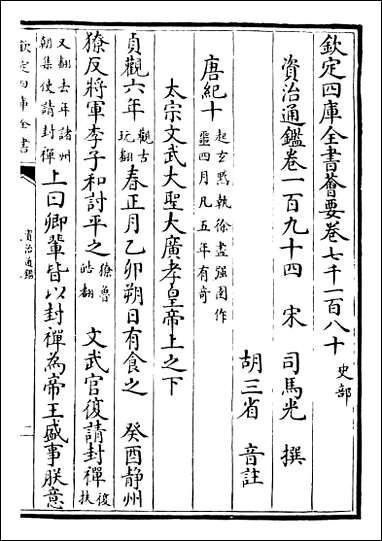 欽定四庫全書薈要卷七千一百八十 史部
資治通鑑卷一百九十四 宋 司馬光 撰
胡三省 音註
唐紀十 起玄黓執徐盡強圉作
噩四月凡五年有奇
太宗文武大聖大廣孝皇帝上之下
貞觀六年 觀古
玩翻 春正月乙卯朔日有食之 癸酉静州
獠反將軍李子和討平之 獠魯
皓翻 文武官復請封禪 復
扶
又翻去年諸州
朝集使請封禪 上曰卿輩皆以封禪為帝王盛事朕意
欽定四庫全書
資治通鑑